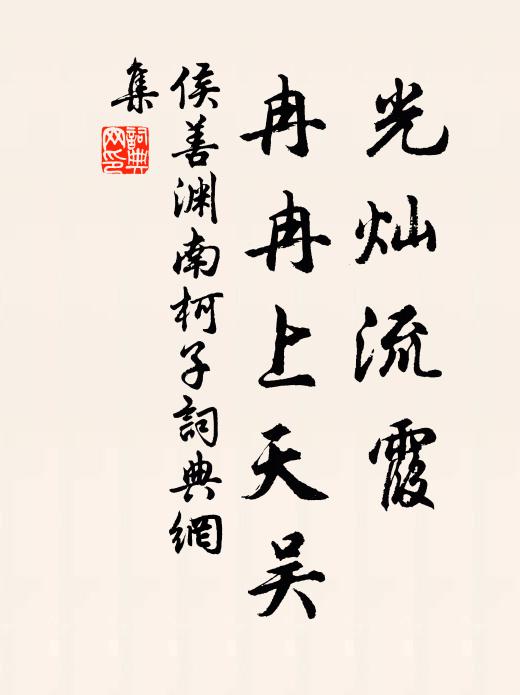 光灿流霞
冉冉上天吴
侯善渊南柯子詞典網
集
詞典网印